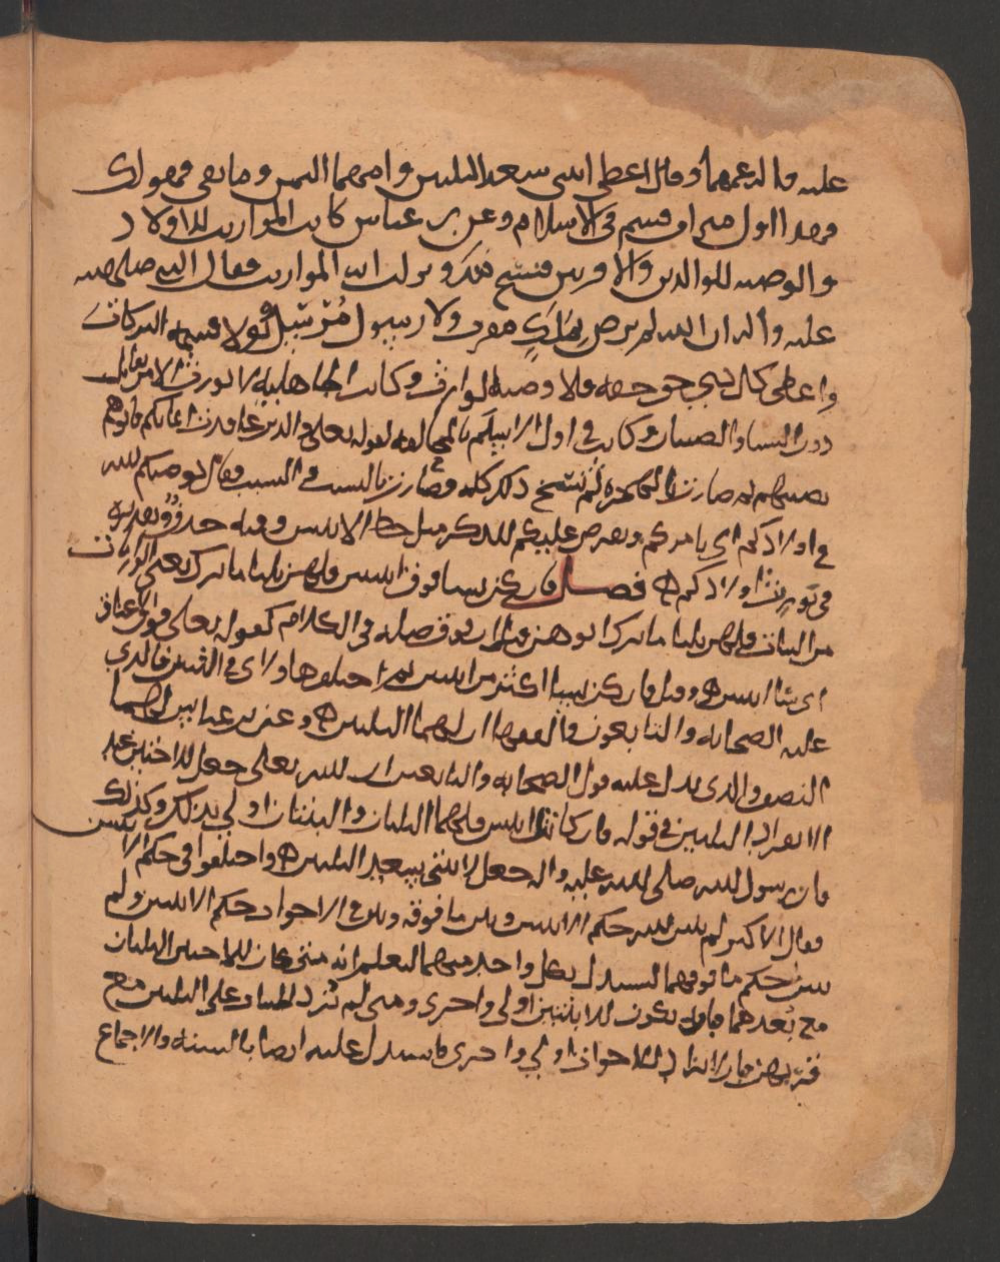 عليه واله عمهما وقال اعطي ابنتي سعد الثلثين وامهما الثمن وما بقي فهو لك
فهذا اول ميراث قسم في الاسلام وعن بن عباس كانت المواريث للاولاد
والوصيه للوالدين والاقربين فنسخ ذلك ونزلت ايه المواريث فقال النبي صلى الله
عليه واله ان الله لم يرض بملك مقرب ولا نبي مرسل تولا قسمه التركات
واعطى كل ذي حق حقه فلا وصيه لوارث وكانت الجاهليه لا تورث الا من يقاتل
دون النسا والصبيان وكانت في اول الاسلام بالمحالفه لقوله تعالى والذين عاقدت ايمانكم فاتوهم
نصيبهم ثم صارت بالهجره ثم نسخ ذلك كله وصارت بالنسب والسبب فقال يوصيكم الله
في اولادكم اي يامركم ويفرض عليكم للذكر مثل حظ الانثيين وفيه حذف وتقديره
في توريث اولادكم فصل فان كن نسا فوق اثنتين فلهن ثلثا ما ترك يعني الوارثات
من البنات فلهن ثلثا ما ترك ابوهن فوق صله في الكلام كقوله تعالى فوق الاعناق
اي نسا اثنتين وقيل فان كن نسا اكثر من اثنتين ثم اختلفوا في الثنتين فالذي
عليه الصحابه والتابعون والفقها ان لهما الثلثين وعن بن عباس لهما
النصف والذي يدل عليه قول الصحابه والتابعين ان الله تعالى جعل للاختين عند
الانفراد الثلثين في قوله فان كانتا اثنتين فلهما الثلثان والبنتان اولى بذلك وكذلك
فان رسول الله صلى الله عليه واله جعل لابنتي سعد الثلثين واختلفوا في حكم الاثنتين
فقال الاكثر لم يبين الله حكم الاثنتين وبين ما فوقه وبين في الاخوات حكم الاثنتين ولم
يبين حكم ما فوقهما ليستدل بكل واحد منهما ليعلم انه متى كان للاختين الثلثان
مع بعدهما فبان يكون للابنتين اولى واحرى ومتى لم تزد البنات على الثلثين مع
قربهن فبان لا تزاد الاخوات اولى واحرى فاستدل عليه ايضا بالسنه والاجماع